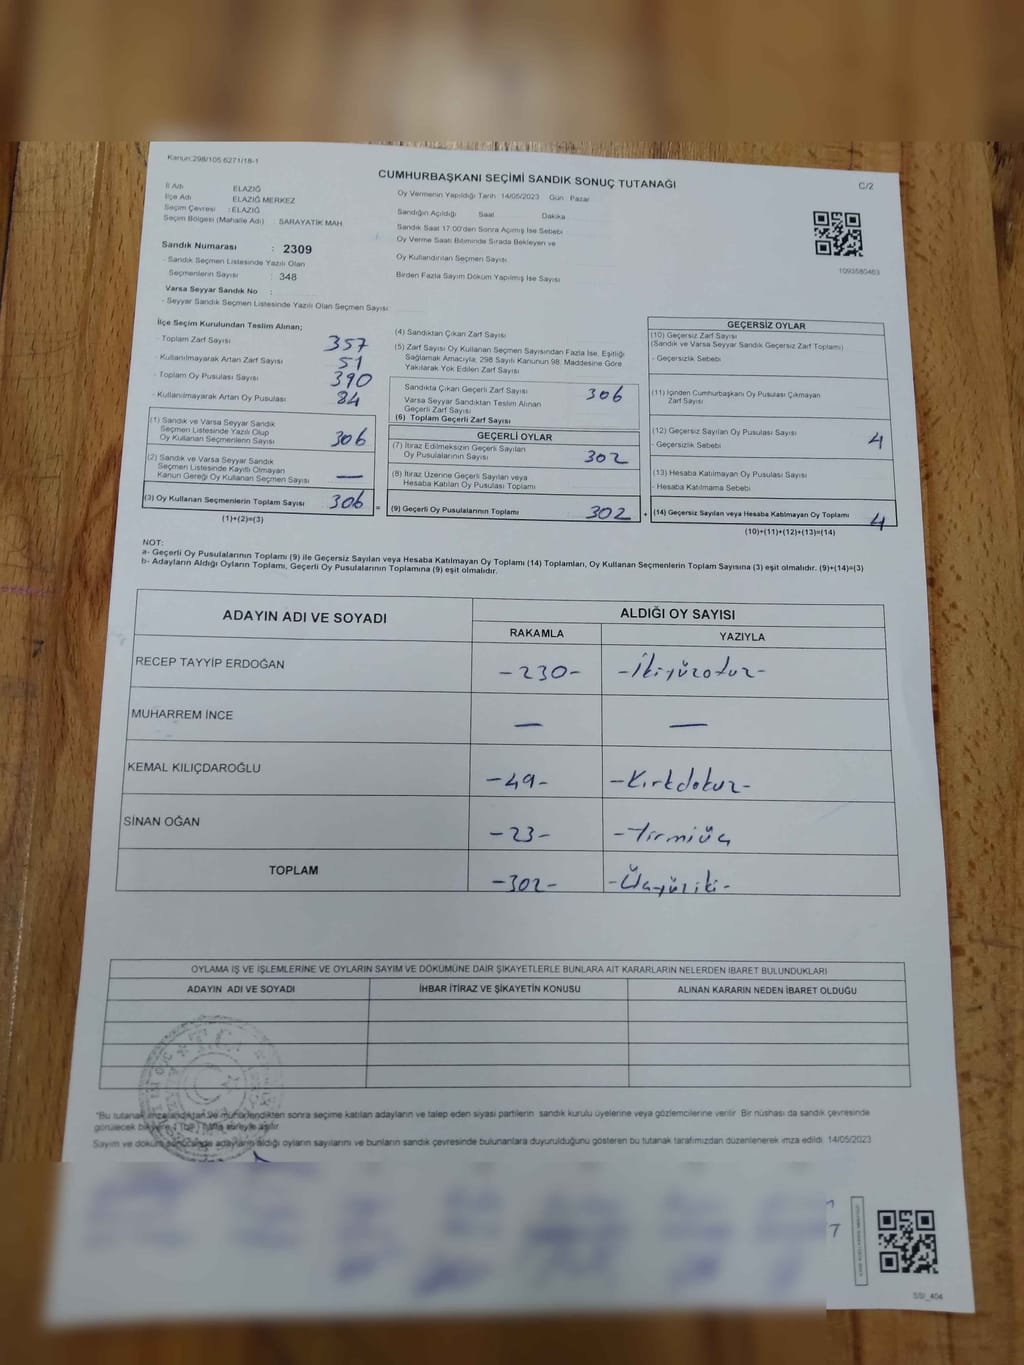 Kanun:298/105.6271/18-1
CUMHURBAŞKANI SEÇİMİ SANDIK SONUÇ TUTANAĞI
C/2
İl Adı ELAZIĞ
İlçe Adı ELAZIĞ MERKEZ
Seçim Çevresi : ELAZIĞ
Seçim Bölgesi (Mahalle Adı) : SARAYATİK MAH
Sandık Numarası : 2309
- Sandık Seçmen Listesinde Yazılı Olan
Seçmenlerin Sayısı : 348
Varsa Seyyar Sandık No :
- Seyyar Sandık Seçmen Listesinde Yazılı Olan Seçmen Sayısı
Oy Vermenin Yapıldığı Tarih 14/05/2023 Gün Pazar
Sandığın Açıldığı Saat Dakika
Sandık Saat 17:00'den Sonra Açımış İse Sebebi
Oy Verme Saati Bitiminde Sırada Bekleyen ve
Oy Kullandırılan Seçmen Sayısı
Birden Fazla Sayım Döküm Yapılmış İse Sayısı
1093580463
İlçe Seçim Kurulundan Teslim Alınan;
- Toplam Zarf Sayısı 357
- Kullanılmayarak Artan Zarf Sayısı 51
- Toplam Oy Pusulası Sayısı 390
- Kullanılmayarak Artan Oy Pusulası 84
(1) Sandık ve Varsa Seyyar Sandık
Seçmen Listesinde Yazılı Olup
Oy Kullanan Seçmenlerin Sayısı 306
(2) Sandık ve Varsa Seyyar Sandık
Seçmen Listesinde Kayıtlı Olmayan
Kanun Gereği Oy Kullanan Seçmen Sayısı —
(3) Oy Kullanan Seçmenlerin Toplam Sayısı 306 =
(1)+(2)=(3)
(4) Sandıktan Çıkan Zarf Sayısı
(5) Zarf Sayısı Oy Kullanan Seçmen Sayısından Fazla İse, Eşitliği
Sağlamak Amacıyla; 298 Sayılı Kanunun 98. Maddesine Göre
Yakılarak Yok Edilen Zarf Sayısı
Sandıkta Çıkan Geçerli Zarf Sayısı 306
Varsa Seyyar Sandıktan Teslim Alınan
Geçerli Zarf Sayısı
(6) Toplam Geçerli Zarf Sayısı
GEÇERLİ OYLAR
(7) İtiraz Edilmeksizin Geçerli Sayılan
Oy Pusulalarının Sayısı 302
(8) İtiraz Üzerine Geçerli Sayılan veya
Hesaba Katılan Oy Pusulası Toplamı
(9) Geçerli Oy Pusulalarının Toplamı 302 +
GEÇERSİZ OYLAR
(10) Geçersiz Zarf Sayısı
(Sandık ve Varsa Seyyar Sandık Geçersiz Zarf Toplamı)
- Geçersizlik Sebebi
(11) İçinden Cumhurbaşkanı Oy Pusulası Çıkmayan
Zarf Sayısı
(12) Geçersiz Sayılan Oy Pusulası Sayısı 4
- Geçersizlik Sebebi
(13) Hesaba Katılmayan Oy Pusulası Sayısı
- Hesaba Katılmama Sebebi
(14) Geçersiz Sayılan veya Hesaba Katılmayan Oy Toplamı 4
(10)+(11)+(12)+(13)=(14)
NOT:
a- Geçerli Oy Pusulalarının Toplamı (9) ile Geçersiz Sayılan veya Hesaba Katılmayan Oy Toplamı (14) Toplamları, Oy Kullanan Seçmenlerin Toplam Sayısına (3) eşit olmalıdır. (9)+(14)=(3)
b- Adayların Aldığı Oyların Toplamı, Geçerli Oy Pusulalarının Toplamına (9) eşit olmalıdır.
ADAYIN ADI VE SOYADI ALDIĞI OY SAYISI
RAKAMLA YAZIYLA
RECEP TAYYİP ERDOĞAN -230- -İkiyüzotuz-
MUHARREM İNCE — —
KEMAL KILIÇDAROĞLU -49- -Kırkdokuz-
SİNAN OĞAN -23- -Yirmiüç
TOPLAM -302- -Üçyüziki-
OYLAMA İŞ VE İŞLEMLERİNE VE OYLARIN SAYIM VE DÖKÜMÜNE DAİR ŞİKAYETLERLE BUNLARA AİT KARARLARIN NELERDEN İBARET BULUNDUKLARI
ADAYIN ADI VE SOYADI İHBAR İTİRAZ VE ŞİKAYETİN KONUSU ALINAN KARARIN NEDEN İBARET OLDUĞU
T.C.
*Bu tutanak imzalandıktan ve mühürlendikten sonra seçime katılan adayların ve talep eden siyasi partilerin sandık kurulu üyelerine veya gözlemcilerine verilir. Bir nüshası da sandık çevresinde
görülecek bir yere 1 (bir) hafta süreyle asılır.
Sayım ve döküm sonucunda adayların aldığı oyların sayılarını ve bunların sandık çevresinde bulunanlara duyurulduğunu gösteren bu tutanak tarafımızdan düzenlenerek imza edildi. 14/05/2023
7
SSI_404